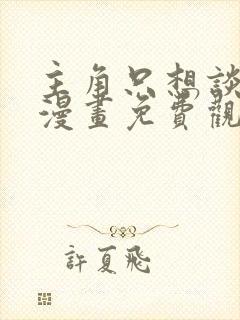 主角只想談
漫畫免費觀
許夏飛